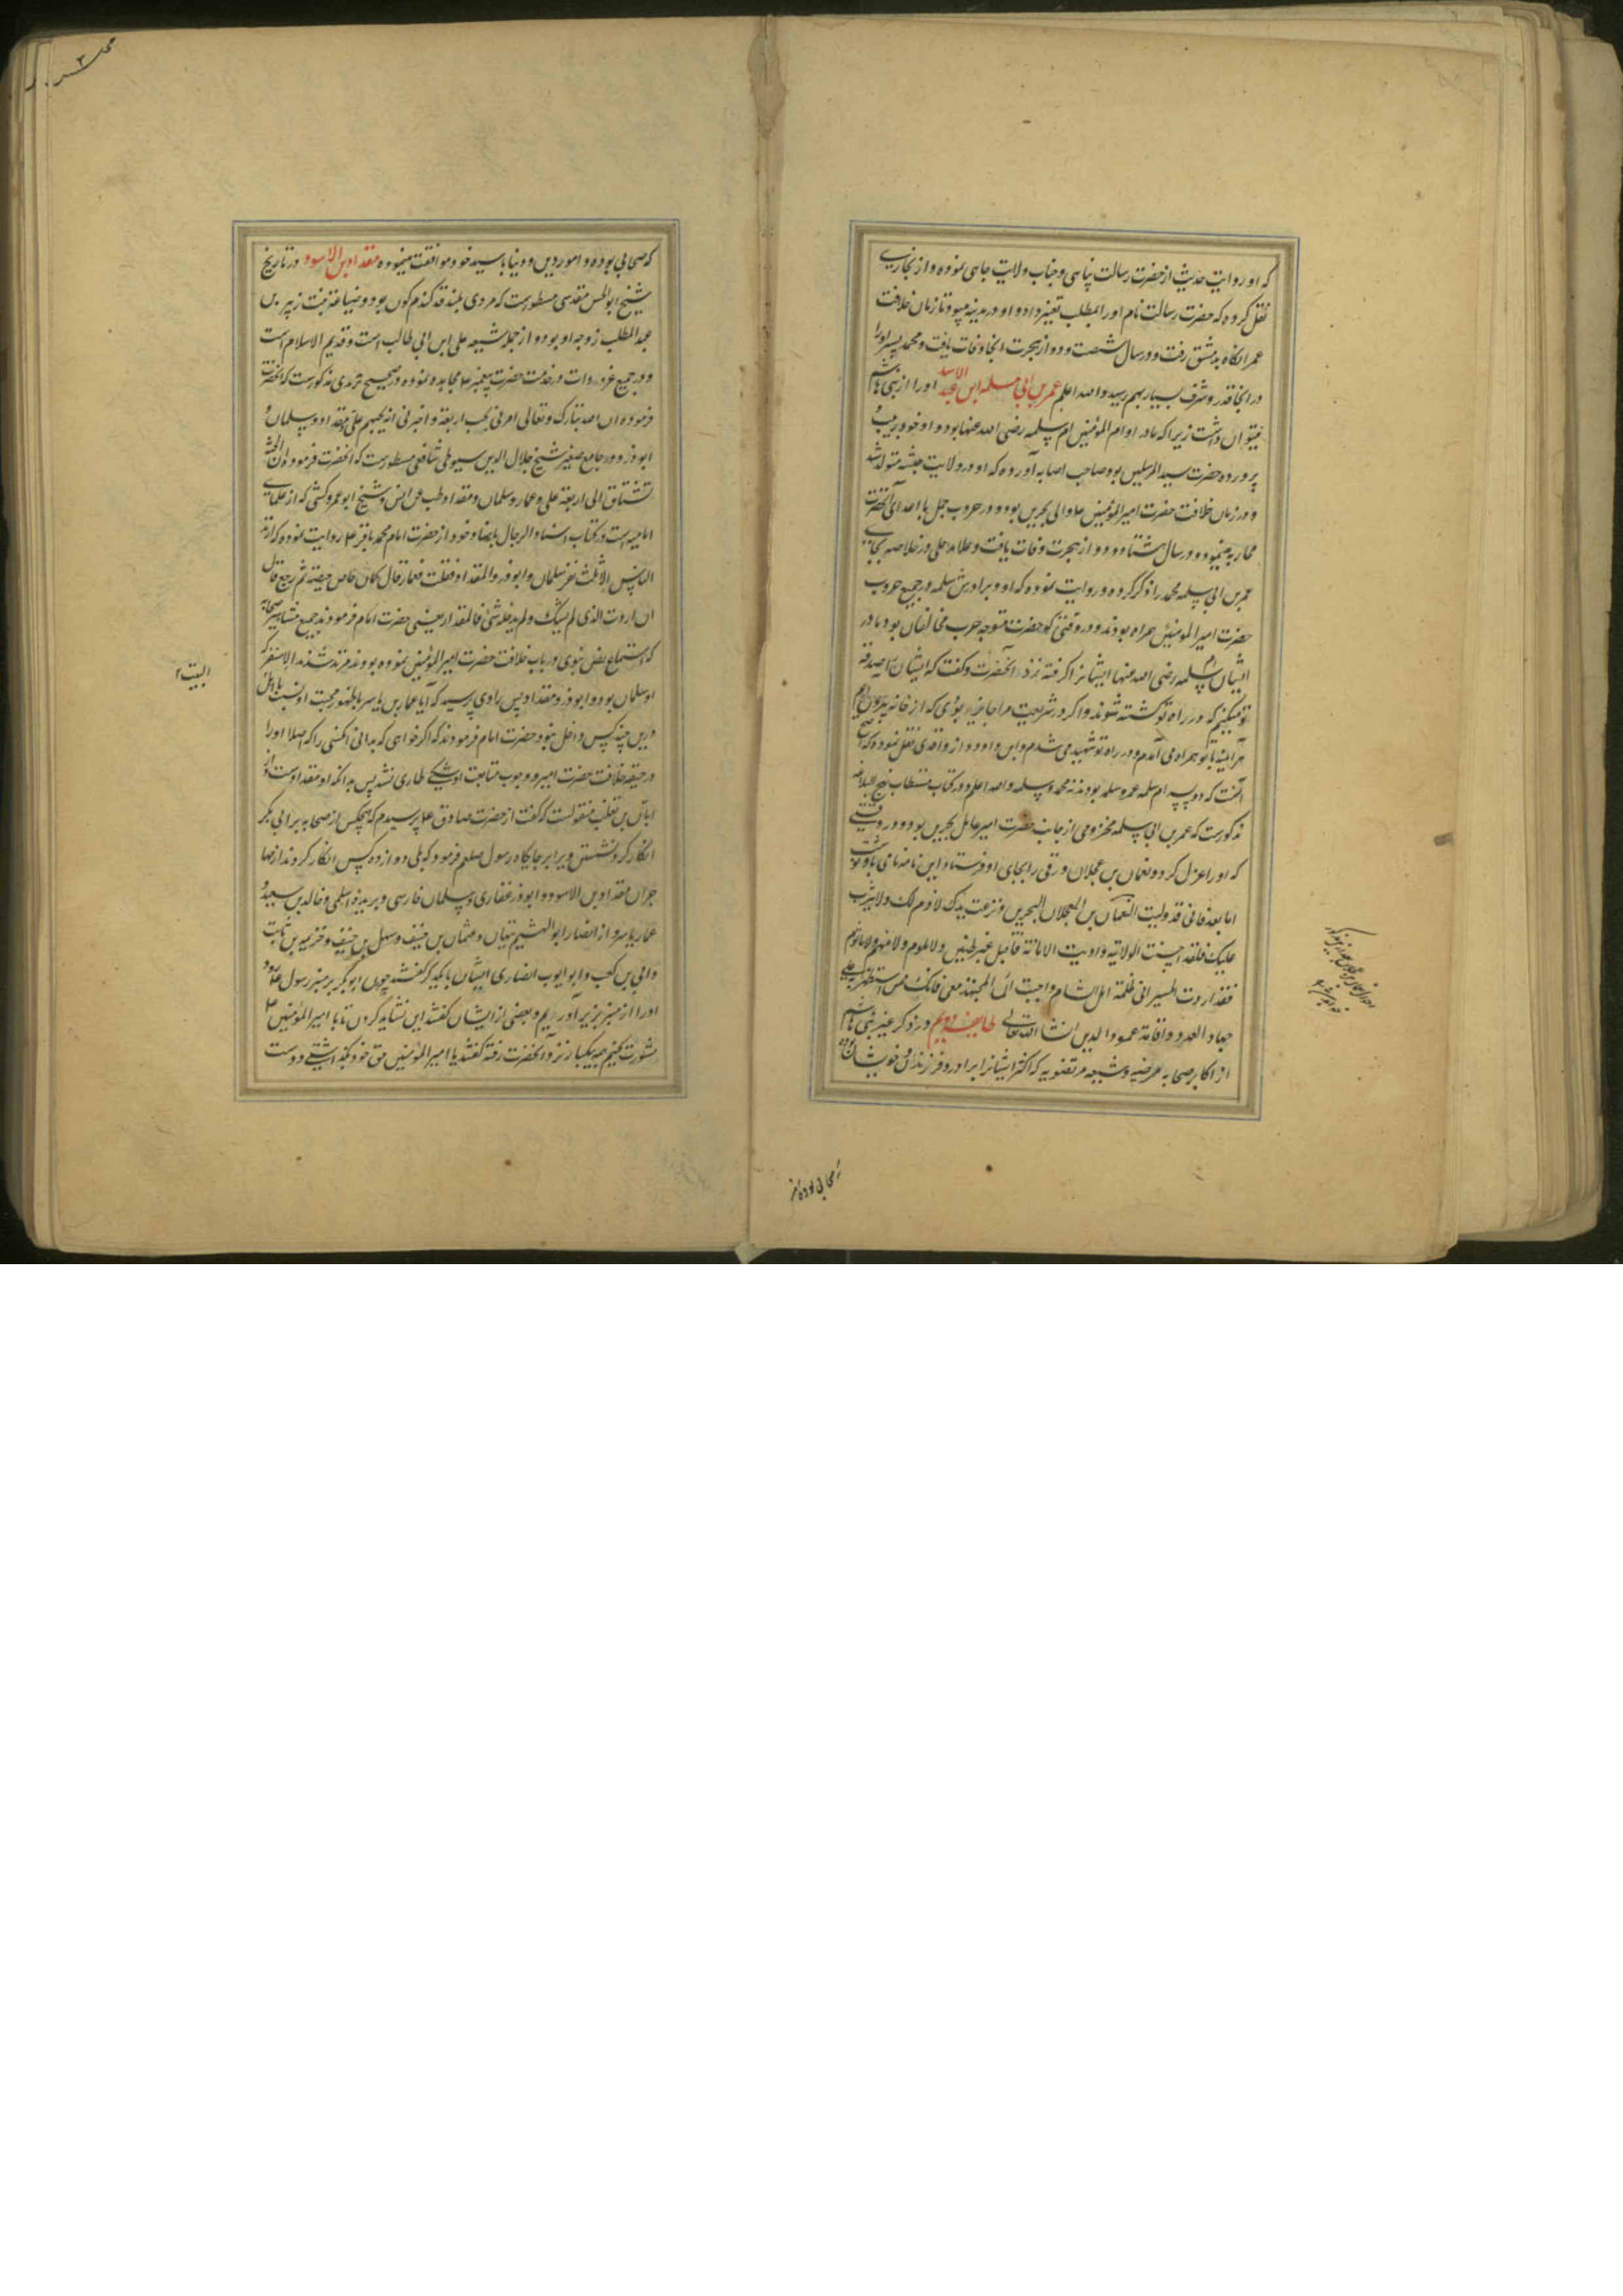 که او روایت حدیث از حضرت رسالت پناهی و جناب ولایت جاهی نموده و از بخاری
نقل کرده که حضرت رسالت نام او را المطلب تغییر داد و او در مدینه میبود تا زمان خلافت
عمر انکاه بدمشق رفت و در سال شصت و دو از هجرت انجا وفات یافت و محمد پسر او را
در انجا قدر و شرف بسیار بهم رسید و الله اعلم عمر بن ابی سلمه ابن عبد الاسد او را از بنی هاشم
میتوان داشت زیرا که مادر او ام المؤمنین ام سلمه رضی الله عنها بود و او خود ربیب و
پرورده حضرت سید المرسلین بود و صاحب اصابه آورده که او در ولایت حبشه متولد شد
و در زمان خلافت حضرت امیر المؤمنین ع والی بحرین بود و در حروب جمل با اعدای آنحضرت
محاربه مینمود و در سال هشتاد و دو از هجرت وفات یافت و علامه حلی در خلاصه بجای
عمر بن ابی سلمه محمد را ذکر کرده و روایت نموده که او و برادرش سلمه در جمیع حروب
حضرت امیر المومنین همراه بودند و در وقتی که حضرت متوجه حرب مخالفان بود مادر
ایشان ام سلمه رضی الله عنها ایشانرا گرفته نزد آنحضرت و گفت که ایشان را صدقه
تو میکنم که در راه تو کشته شوند و اگر در شریعت مرا جایز بودی که از خانه بیرون آیم
هر آینه با تو همراه می آمدم و در راه تو شهید می شدم و ابن داود از واقدی نقل نموده که اصح
انست که دو پسر ام سلمه عمر و سلمه بودند نه محمد و سلمه و الله اعلم و در کتاب مستطاب نهج البلاغه
مذکورست که عمر بن ابی سلمه مخزومی از جانب حضرت امیر عامل بحرین بود و در وقتی
که او را عزل کرد و نعمان بن عجلان ورقی را بجای او فرستاد این نامه نامی باو نوشت
اما بعد فانی قد ولیت النعمان بن العجلان البحرین و نزعت یدک لاذم لک ولا تثریب
علیک فلقد احسنت الولایة و ادیت الامانة فاقبل غیر ظنین ولا ملوم ولا متهم ولا ماثوم
فقد اردت المسیر الی ظلمة اهل الشام و احببت ان تشهد معی فانک ممن استظهر به علی
جهاد العدو و اقامة عمود الدین انشاء الله تعالی طایفه دویم در ذکر غیر بنی هاشم
از اکابر صحابه مرضیه و شیعه مرتضویه که اکثر ایشانرا برادر و فرزندان و خویشان بوده
که صحابی بوده و امور دین و دنیا با سید خود موافقت مینموده مقداد بن الاسود در تاریخ
شیخ ابو الحسن مقدسی مسطورست که مردی بلند قد گندم کون بود و ضباعه بنت زبیر بن
عبد المطلب زوجه او بود و از جمله شیعه علی ابن ابی طالب است و قدیم الاسلام است
و در جمیع غزوات در خدمت حضرت پیغمبر ع مجاهده نموده و در صحیح ترمذی مذکورست که آنحضرت
فرموده ان الله تبارک و تعالی امرنی بحب اربعة و اخبرنی انه یحبهم علی و مقداد و سلمان و
ابو ذر و در جامع صغیر شیخ جلال الدین سیوطی شافعی مسطورست که آنحضرت فرموده ان الجنة
تشتاق الی اربعة علی و عمار و سلمان و مقداد و طب عن انس و شیخ ابو عمرو کشی که از علمای
امامیه است در کتاب اسماء الرجال باسناد خود از حضرت امام محمد باقر ع روایت نموده که ارتد
الناس الا ثلث نفر سلمان و ابو ذر و المقداد فقلت فعمار قال کان حاص حیصة ثم رجع قال
ان اردت الذی لم یشک ولم یدخله شئ فالمقداد یعنی حضرت امام فرمودند جمیع مشاهیر صحابه
که استماع نص نبوی در باب خلافت حضرت امیر المؤمنین نموده بودند مرتد شدند الا سه نفر که
او سلمان بود و ابو ذر و مقداد پس راوی پرسید که آیا عمار بن یاسر با ظهور محبت او نسبت باهل
البیت ۲
درین چند کس داخل نبود حضرت امام فرمودند که اگر خواهی که بدانی انکسی را که اصلا او را
در حقیقه خلافت حضرت امیر و وجوب متابعت او شکی طاری نشد پس بدانکه او مقداد است و از
ابان بن تغلب منقولست که گفت از حضرت صادق ع پرسیدم که هیچکس از صحابه بر ابی بکر
انکار کرد نشستن ویرا بر جایگاه رسول صلعم فرمود که بلی دوازده کس انکار کردند از مها
جران مقداد بن الاسود و ابو ذر غفاری و سلمان فارسی و بریده اسلمی و خالد بن سعید و
عمار یاسر و از انصار ابو الهیثم تیهان و عثمان بن حنیف و سهل بن حنیف و خزیمه بن ثابت
و ابی بن کعب و ابو ایوب انصاری ایشان با یکدیگر گفتند چون ابو بکر بر منبر رسول ع رود
او را از منبر بزیر آوریم و بعضی از ایشان گفتند این نشاید کردن تا با امیر المؤمنین ع
مشورت کنیم همه بیکبار نزد آنحضرت رفته گفتند یا امیر المؤمنین حق خود بگذاشتی و دست